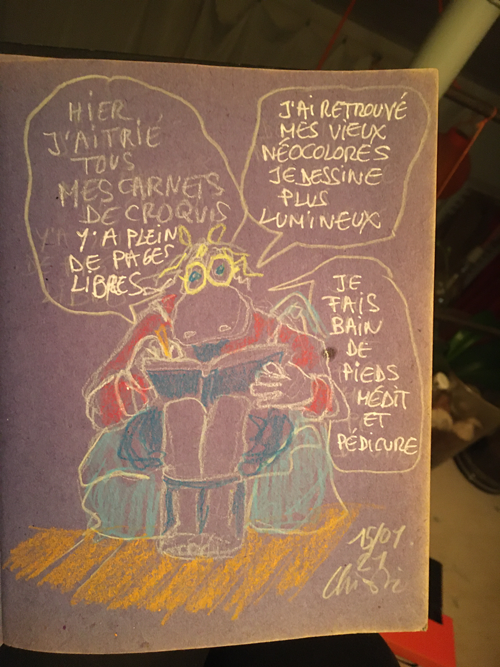 HIER
J'AI TRIÉ
TOUS
MES CARNETS
DE CROQUIS
Y'A PLEIN
DE PAGES
LIBRES
J'AI RETROUVÉ
MES VIEUX
NÉOCOLORES
JE DESSINE
PLUS
LUMINEUX
JE
FAIS
BAIN
DE
PIEDS
MÉDIT
ET
PÉDICURE
15/01
21